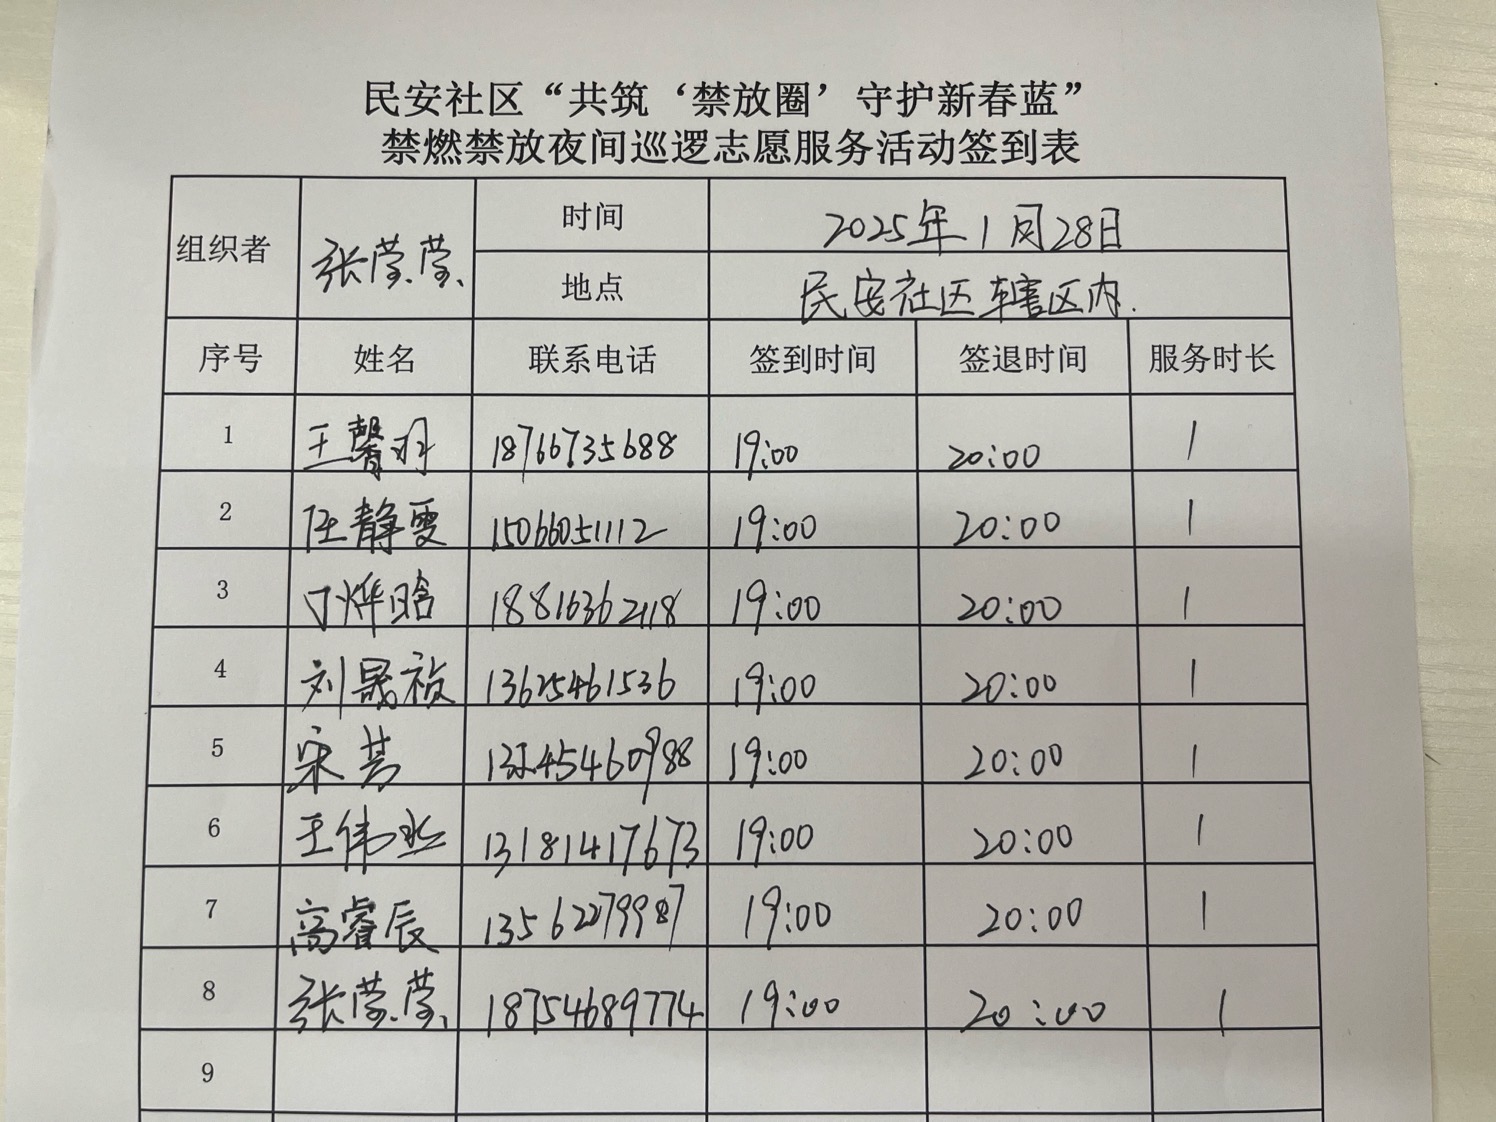 民安社区“共筑‘禁放圈’守护新春蓝”
禁燃禁放夜间巡逻志愿服务活动签到表
组织者 张莹莹 时间 2025年1月28日
地点 民安社区辖区内.
序号 姓名 联系电话 签到时间 签退时间 服务时长
1 王馨羽 18766735688 19:00 20:00 1
2 任静雯 15066051112 19:00 20:00 1
3 丁烨晗 18816362118 19:00 20:00 1
4 刘晟祯 13625461536 19:00 20:00 1
5 宋芸 19:00 20:00 1
6 王伟丞 13181417673 19:00 20:00 1
7 高睿辰 13562279987 19:00 20:00 1
8 张莹莹 18754689774 19:00 20:00 1
9